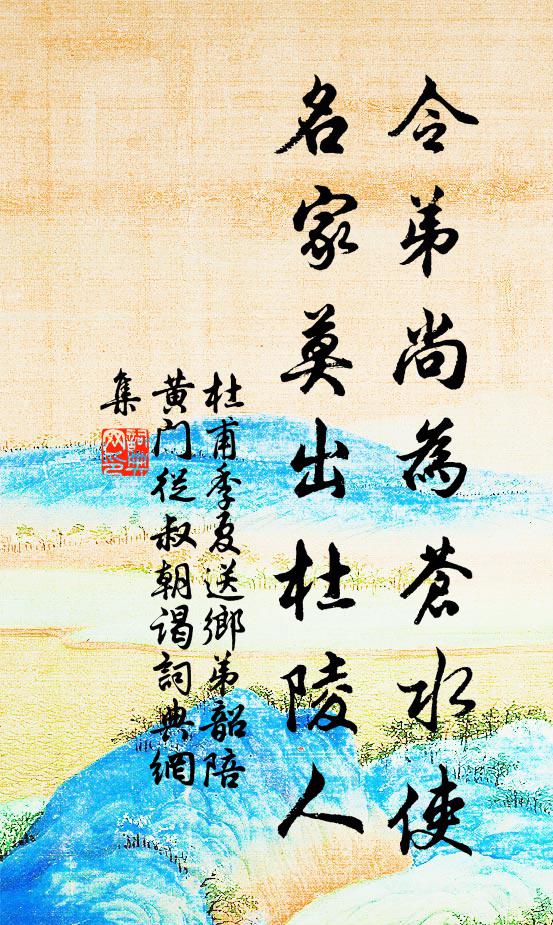 令弟尚為蒼水使
名家莫出杜陵人
杜甫季夏送鄉弟韶陪
黄门從叔朝谒詞典網
集